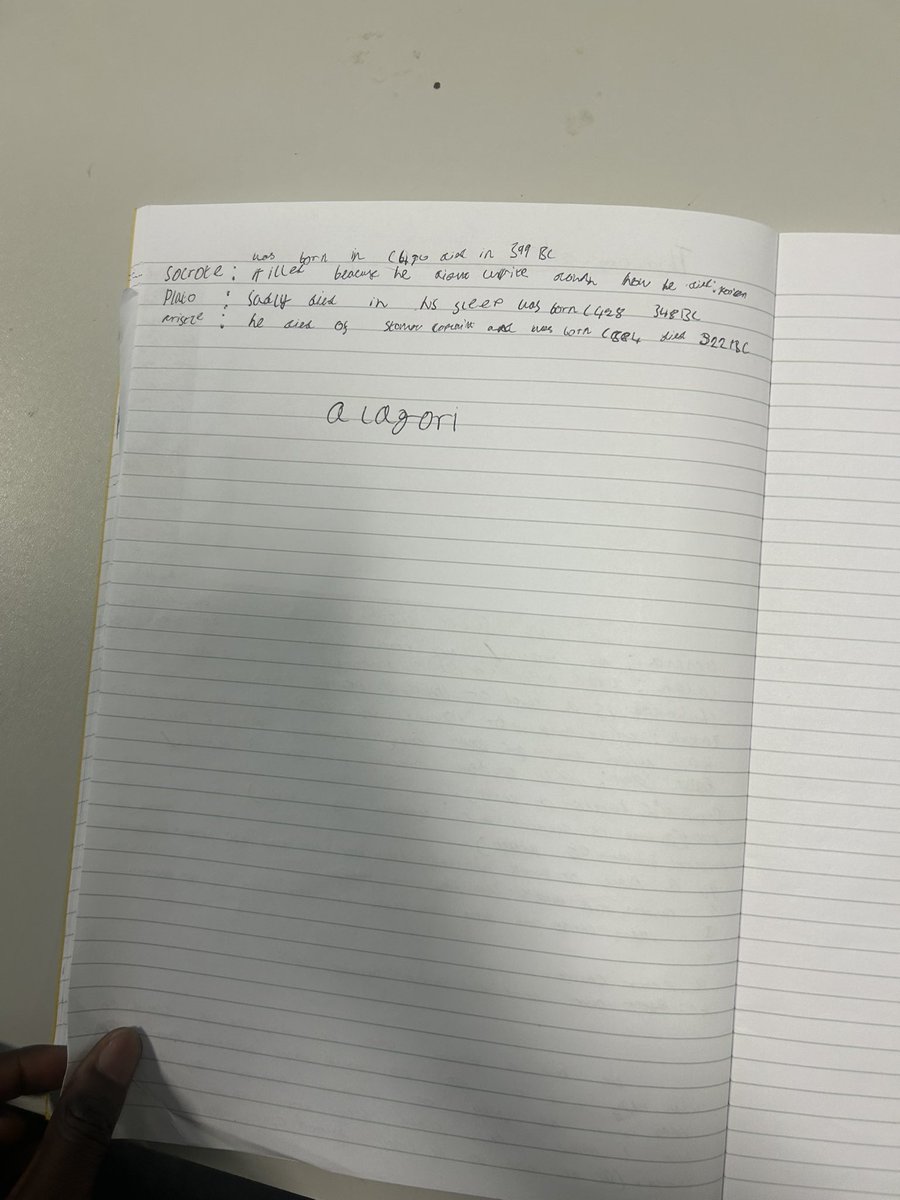 was born in C470 died in 399 BC
Socrote: killed beacuse he didnt write down how he died: poison
Plato : Sadly died in his sleep was born C428 348BC
he died of and was born C384 died 322BC
alagori